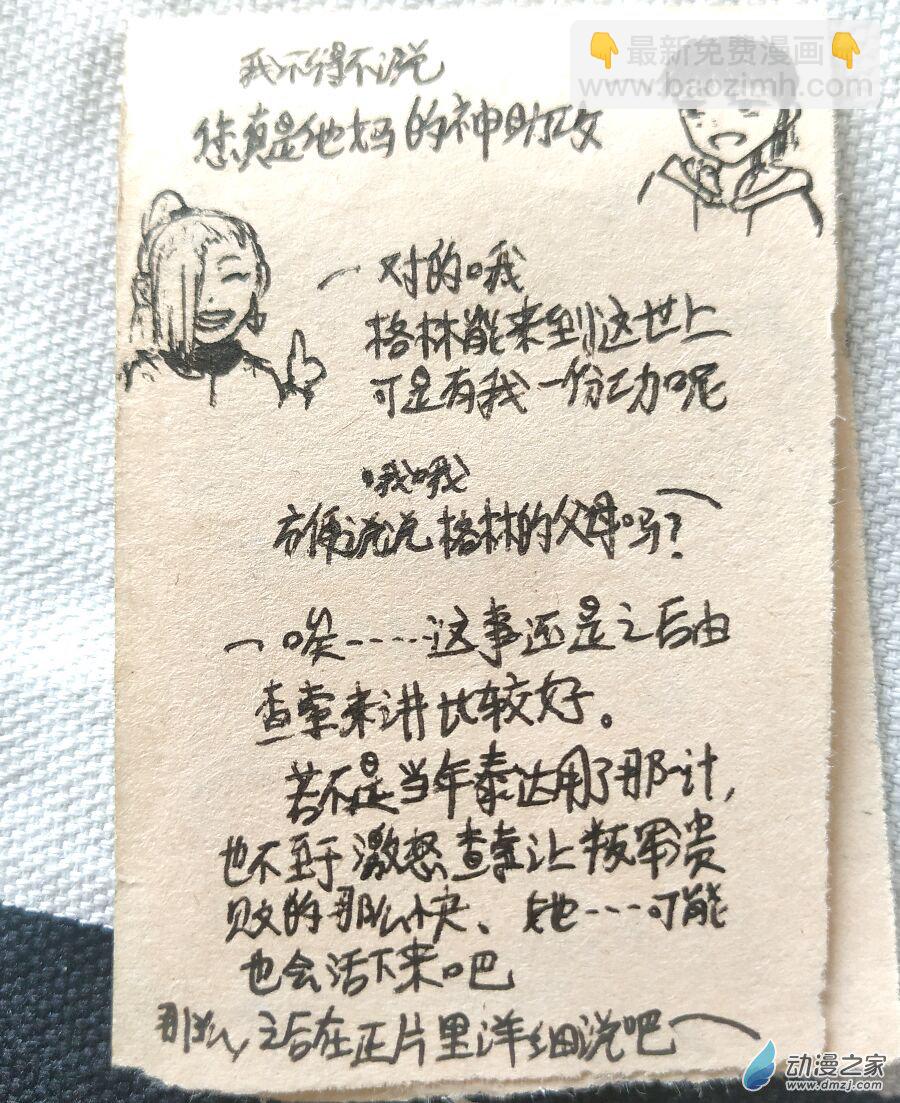 👇最新免费漫画👇
www.baozimh.com
我不得不说
您真是他妈的神助攻
一对的哦
格林能来到这世上
可是有我一份功呢
哦哦
方便说说格林的父母吗?
一唉……这事还是之后由
查索来讲比较好。
若不是当年泰达用了那计,
也不至于激怒查索让叛军贵
败的那么快、她…可能
也会活下来吧
那么,之后在正片里详细说吧
动漫之家
www.dmzj.com